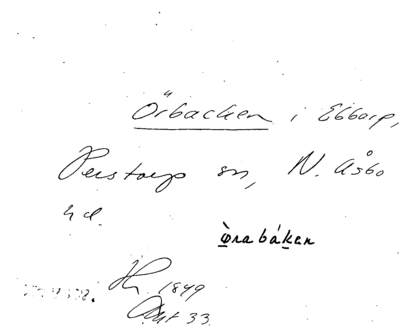 Örbacken i Ebbarp,
Perstorp sn, N. Åsbo
hd.
ö̀rabáken
1849
33